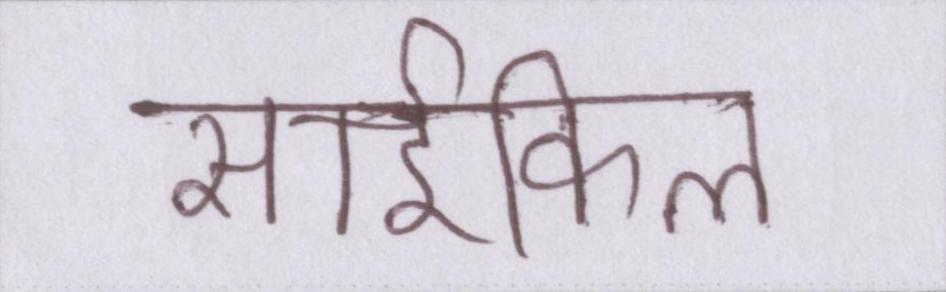 साईकिल